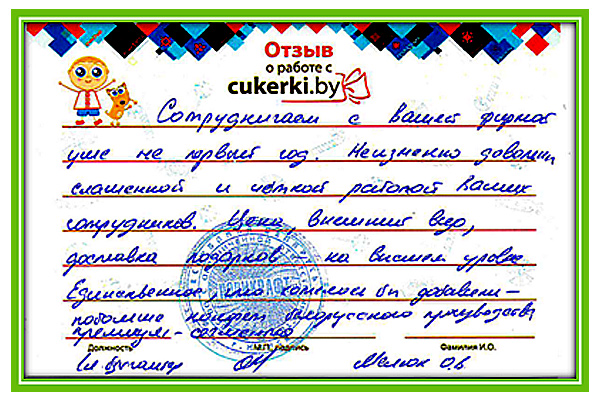 Отзыв
о работе с
cukerki.by
Сотрудничаем с вашей фирмой
уже не первый год. Неизменно довольны
слаженной и четкой работой ваших
сотрудников. Цена, внешний вид,
доставка подарков на высшем уровне.
Единственное, что хотелось бы добавить -
побольше конфет белорусского производства
премиум-
Должность
М.П. подпись
Фамилия И.О.
Гл. бухгалтер
О.В.